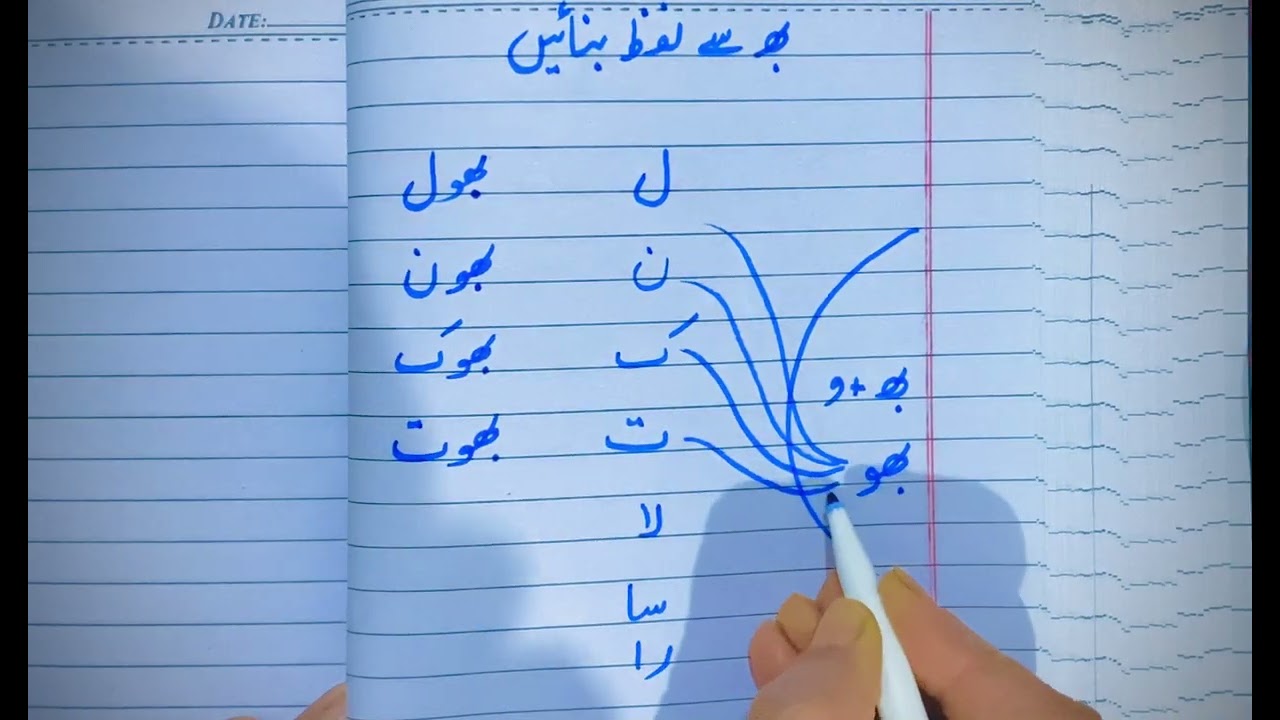 DATE:
بھ سے لفظ بنائیں
ل بھول
ن بھون
بھ + و
ت بھوت
بھو
لا
سا
را